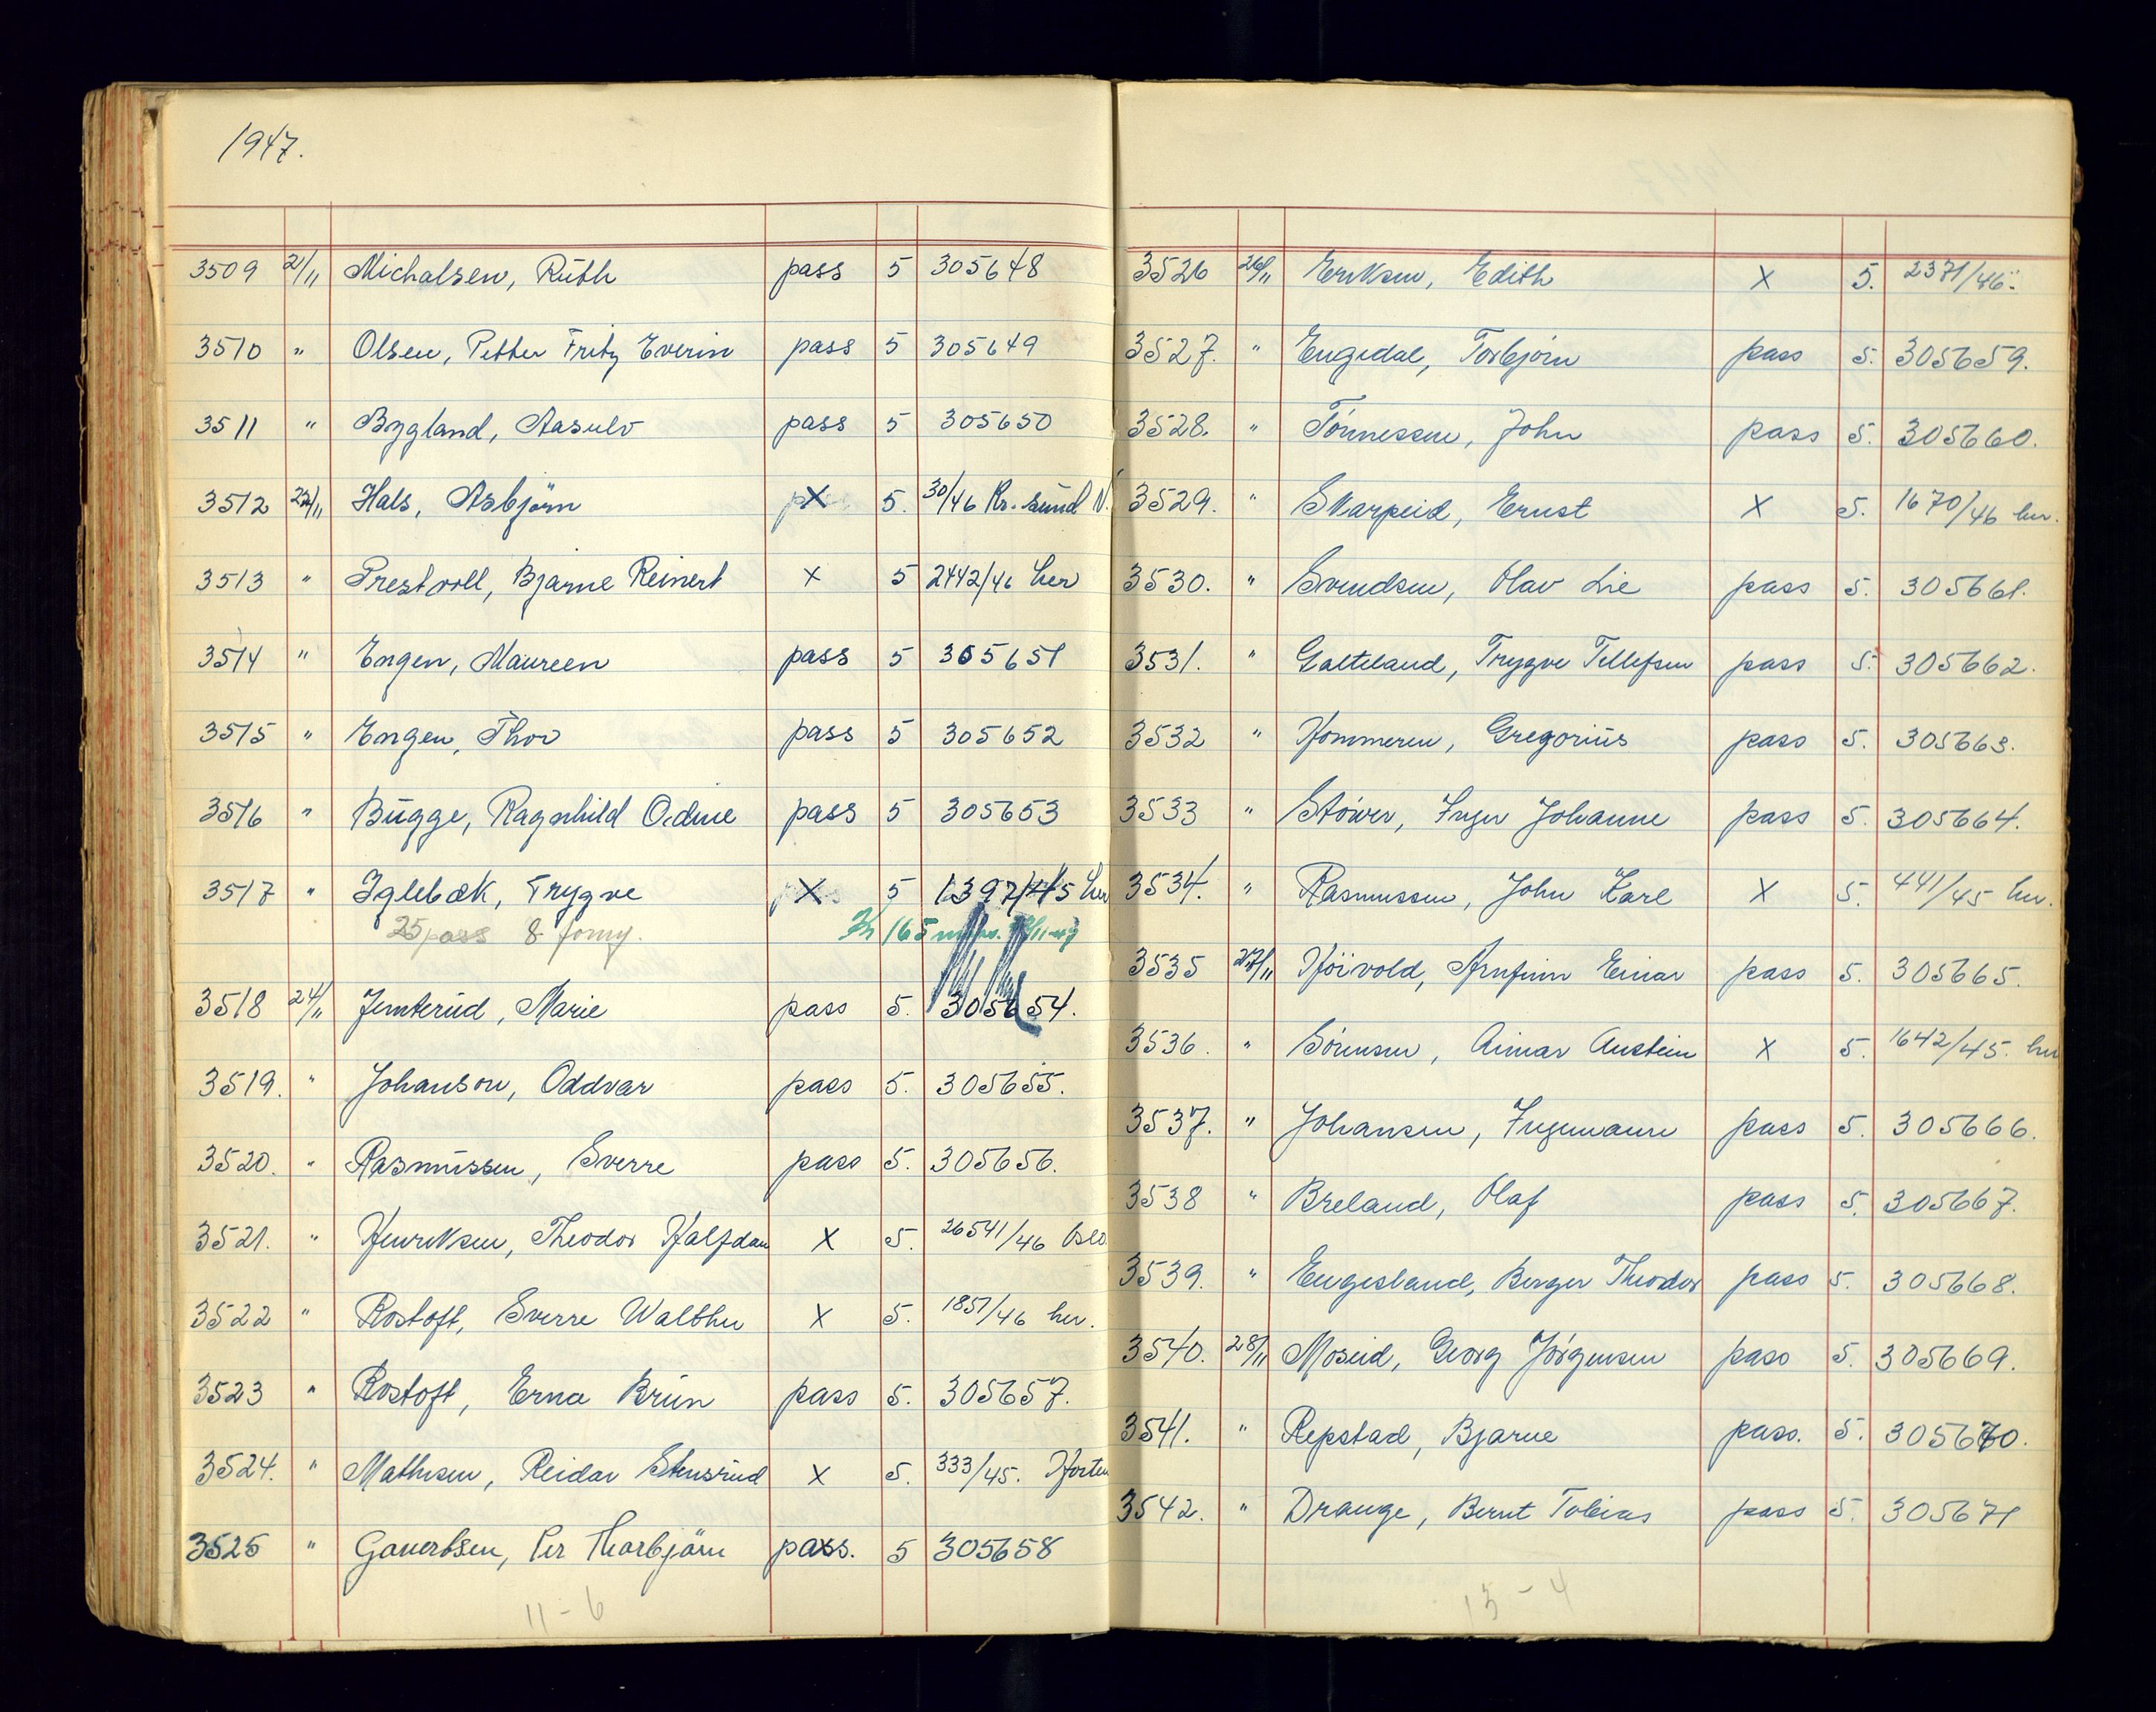 1947.
3509 21/11 Michalsen, Ruth pass 5 305648
3510 " Olsen, Petter Fritz Everin pass 5 305649
3511 " Bygland, Aasulv pass 5 305650
3512 22/11 Hals, Asbjörn X 5. 30/46 Kr.sund N.
3513 " Prestvoll, Bjarne Reinert X 5 2442/46 her
3514 " Engen, Maureen pass 5 305651
3515 " Engen, Thor pass 5 305652
3516 " Bugge, Ragnhild Odine pass 5 305653
3517 " Iglebæk, Trygve X 5 1397/45 her
25 pass 8 forny. Kr 165
3518 24/11 Jemterud, Marie pass 5. 305654.
3519. " Johanson, Oddvar pass 5. 305655.
3520. " Rasmussen, Sverre pass 5. 305656.
3521. " Henriksen, Theodor Halfdan X 5. 26541/46 Oslo
3522 " Rostoft, Sverre Walther X 5. 1851/46 her.
3523 " Rostoft, Erna Brun pass 5. 305657.
3524. " Mathisen, Reidar Stensrud X 5. 333/45. Horten
3525 " Gauertsen, Per Thorbjörn pass. 5 305658
11-6
3526 26/11 Eriksen, Edith X 5. 2371/46.
3527. " Engedal, Torbjörn pass 5. 305659.
3528. " Tönnessen, John pass 5. 305660.
3529. " Skarpeid, Ernst X 5. 1670/46 her.
3530. " Svendsen, Olav Lie pass 5. 305661.
3531. " Galteland, Trygve Tellefsen pass 5. 305662.
3532 " Hommeren, Gregorius pass 5. 305663.
3533 " Stöwer, Inger Johanne pass 5. 305664.
3534. " Rasmussen, John Karl X 5. 441/45 her.
3535 27/11 Höivold, Arnfinn Einar pass 5. 305665.
3536. " Sörensen, Aimar Austein X 5. 1642/45. her
3537. " Johansen, Ingemann pass 5. 305666.
3538 " Breland, Olaf pass 5. 305667.
3539. " Engesland, Berger Theodor pass 5. 305668.
3540. 28/11 Moseid, Georg Jörgensen pass 5. 305669.
3541. " Repstad, Bjarne pass. 5. 305670.
3542. " Drange, Bernt Tobias pass 5. 305671
13-4